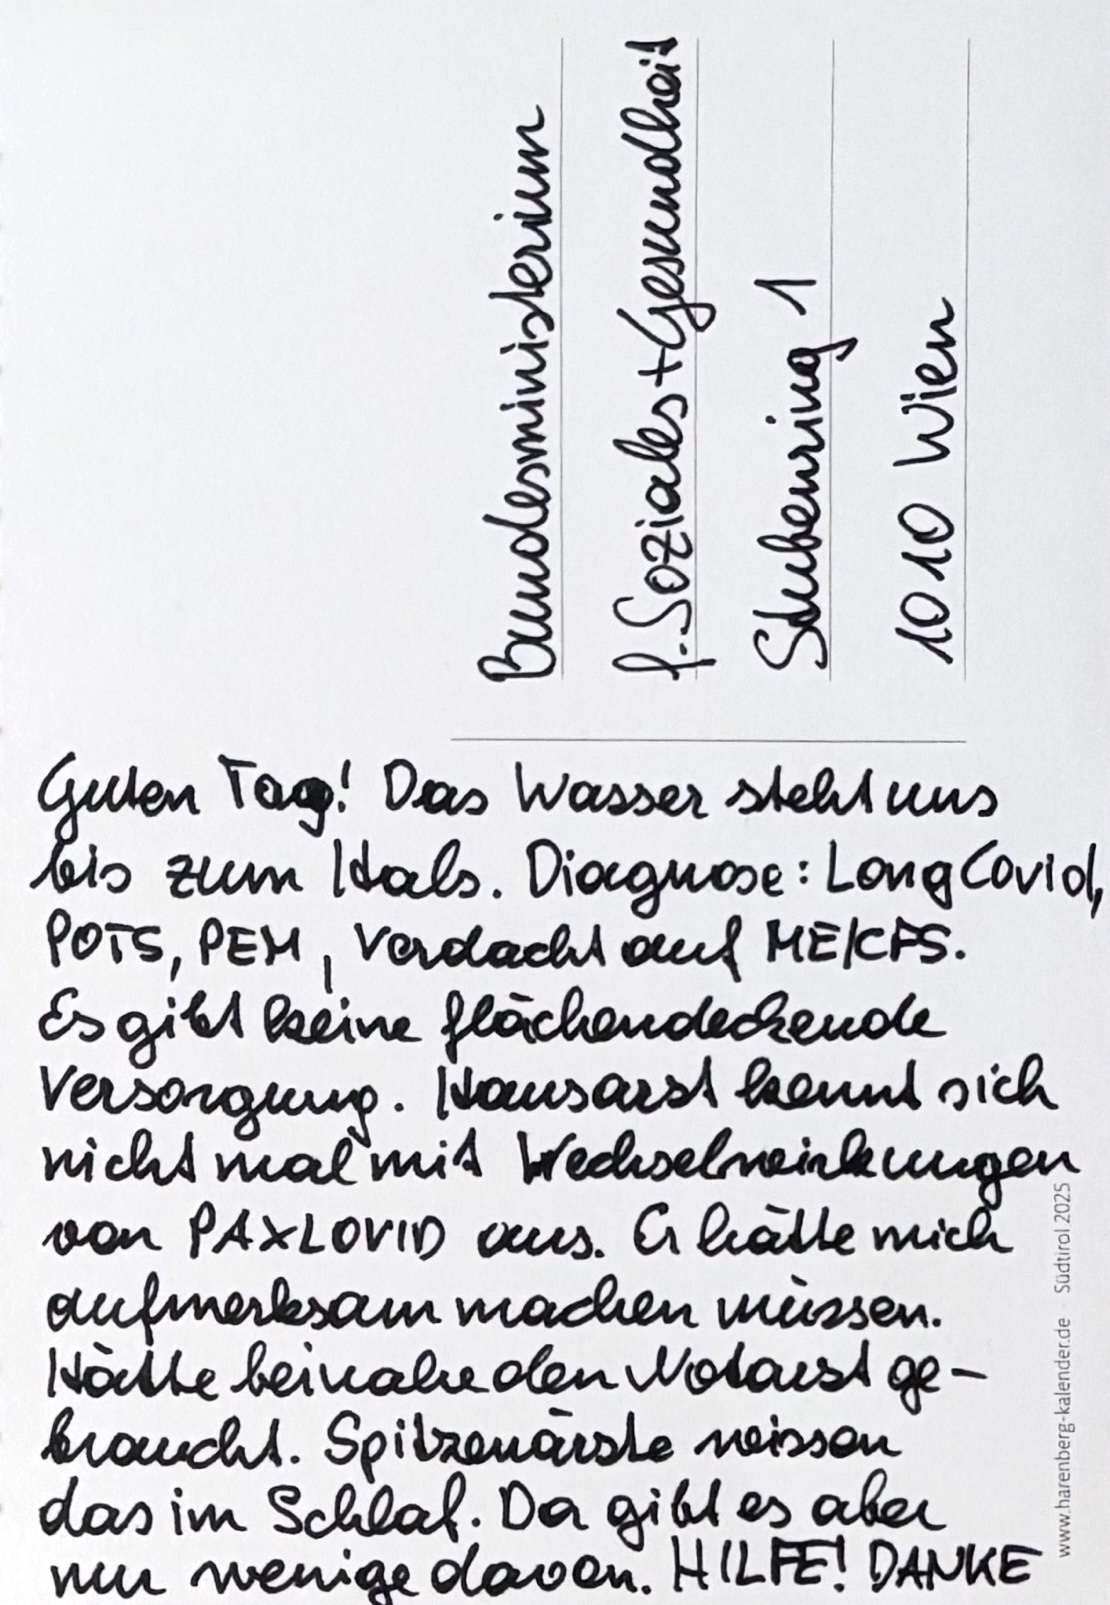 Bundesministerium
f. Soziales + Gesundheit
Stubenring 1
1010 Wien
Guten Tag! Das Wasser steht uns
bis zum Hals. Diagnose: Long Covid,
POTS, PEM, Verdacht auf ME/CFS.
Es gibt keine flächendeckende
Versorgung. Hausarzt kennt sich
nicht mal mit Wechselwirkungen
von PAXLOVID aus. Er hätte mich
aufmerksam machen müssen.
Hätte beinahe den Notarzt ge-
braucht. Spitzenärzte wissen
das im Schlaf. Da gibt es aber
nur wenige davon. HILFE! DANKE
www.harenberg-kalender.de · Südtirol 2025